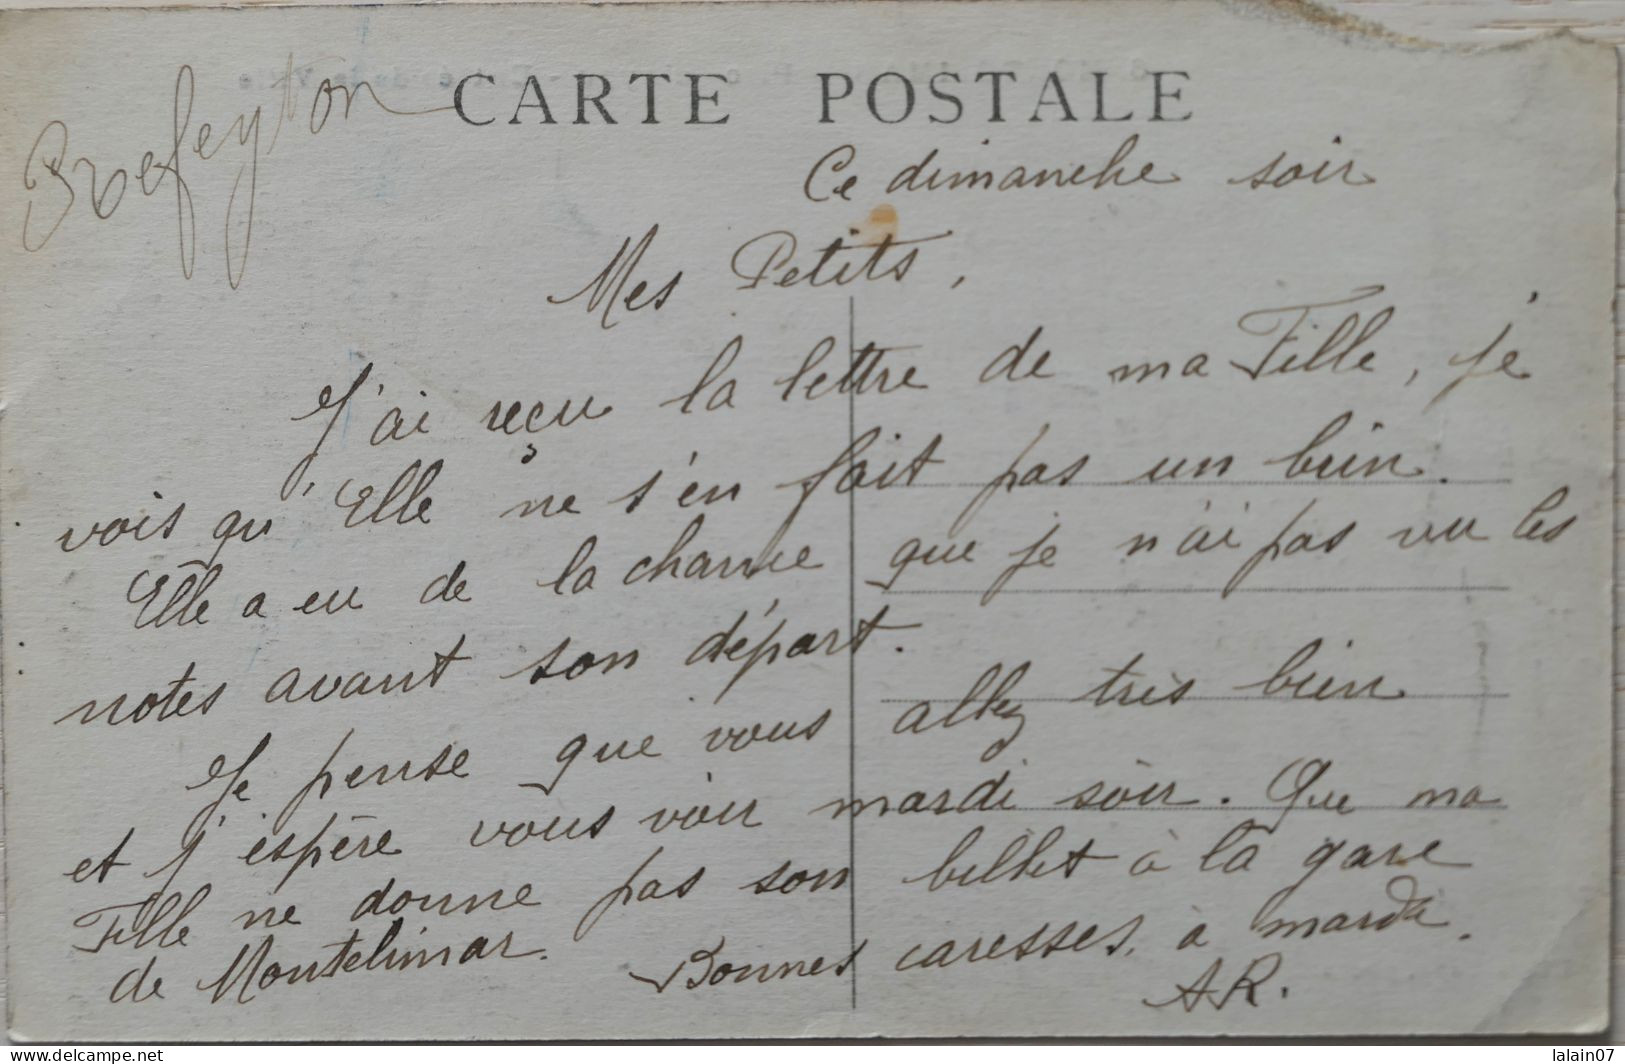 CARTE POSTALE
Ce dimanche soir
Mes Petits,
J'ai reçu la lettre de ma Fille, je
vois qu'Elle ne s'en fait pas un brin.
Elle a eu de la chance que je n'ai pas vu les
notes avant son départ.
Je pense que vous allez très bien
et j'espère vous voir mardi soir. Que ma
Fille ne donne pas son billet à la gare
de Montelimar. Bonnes caresses, à mardi.
AR.
lalain07